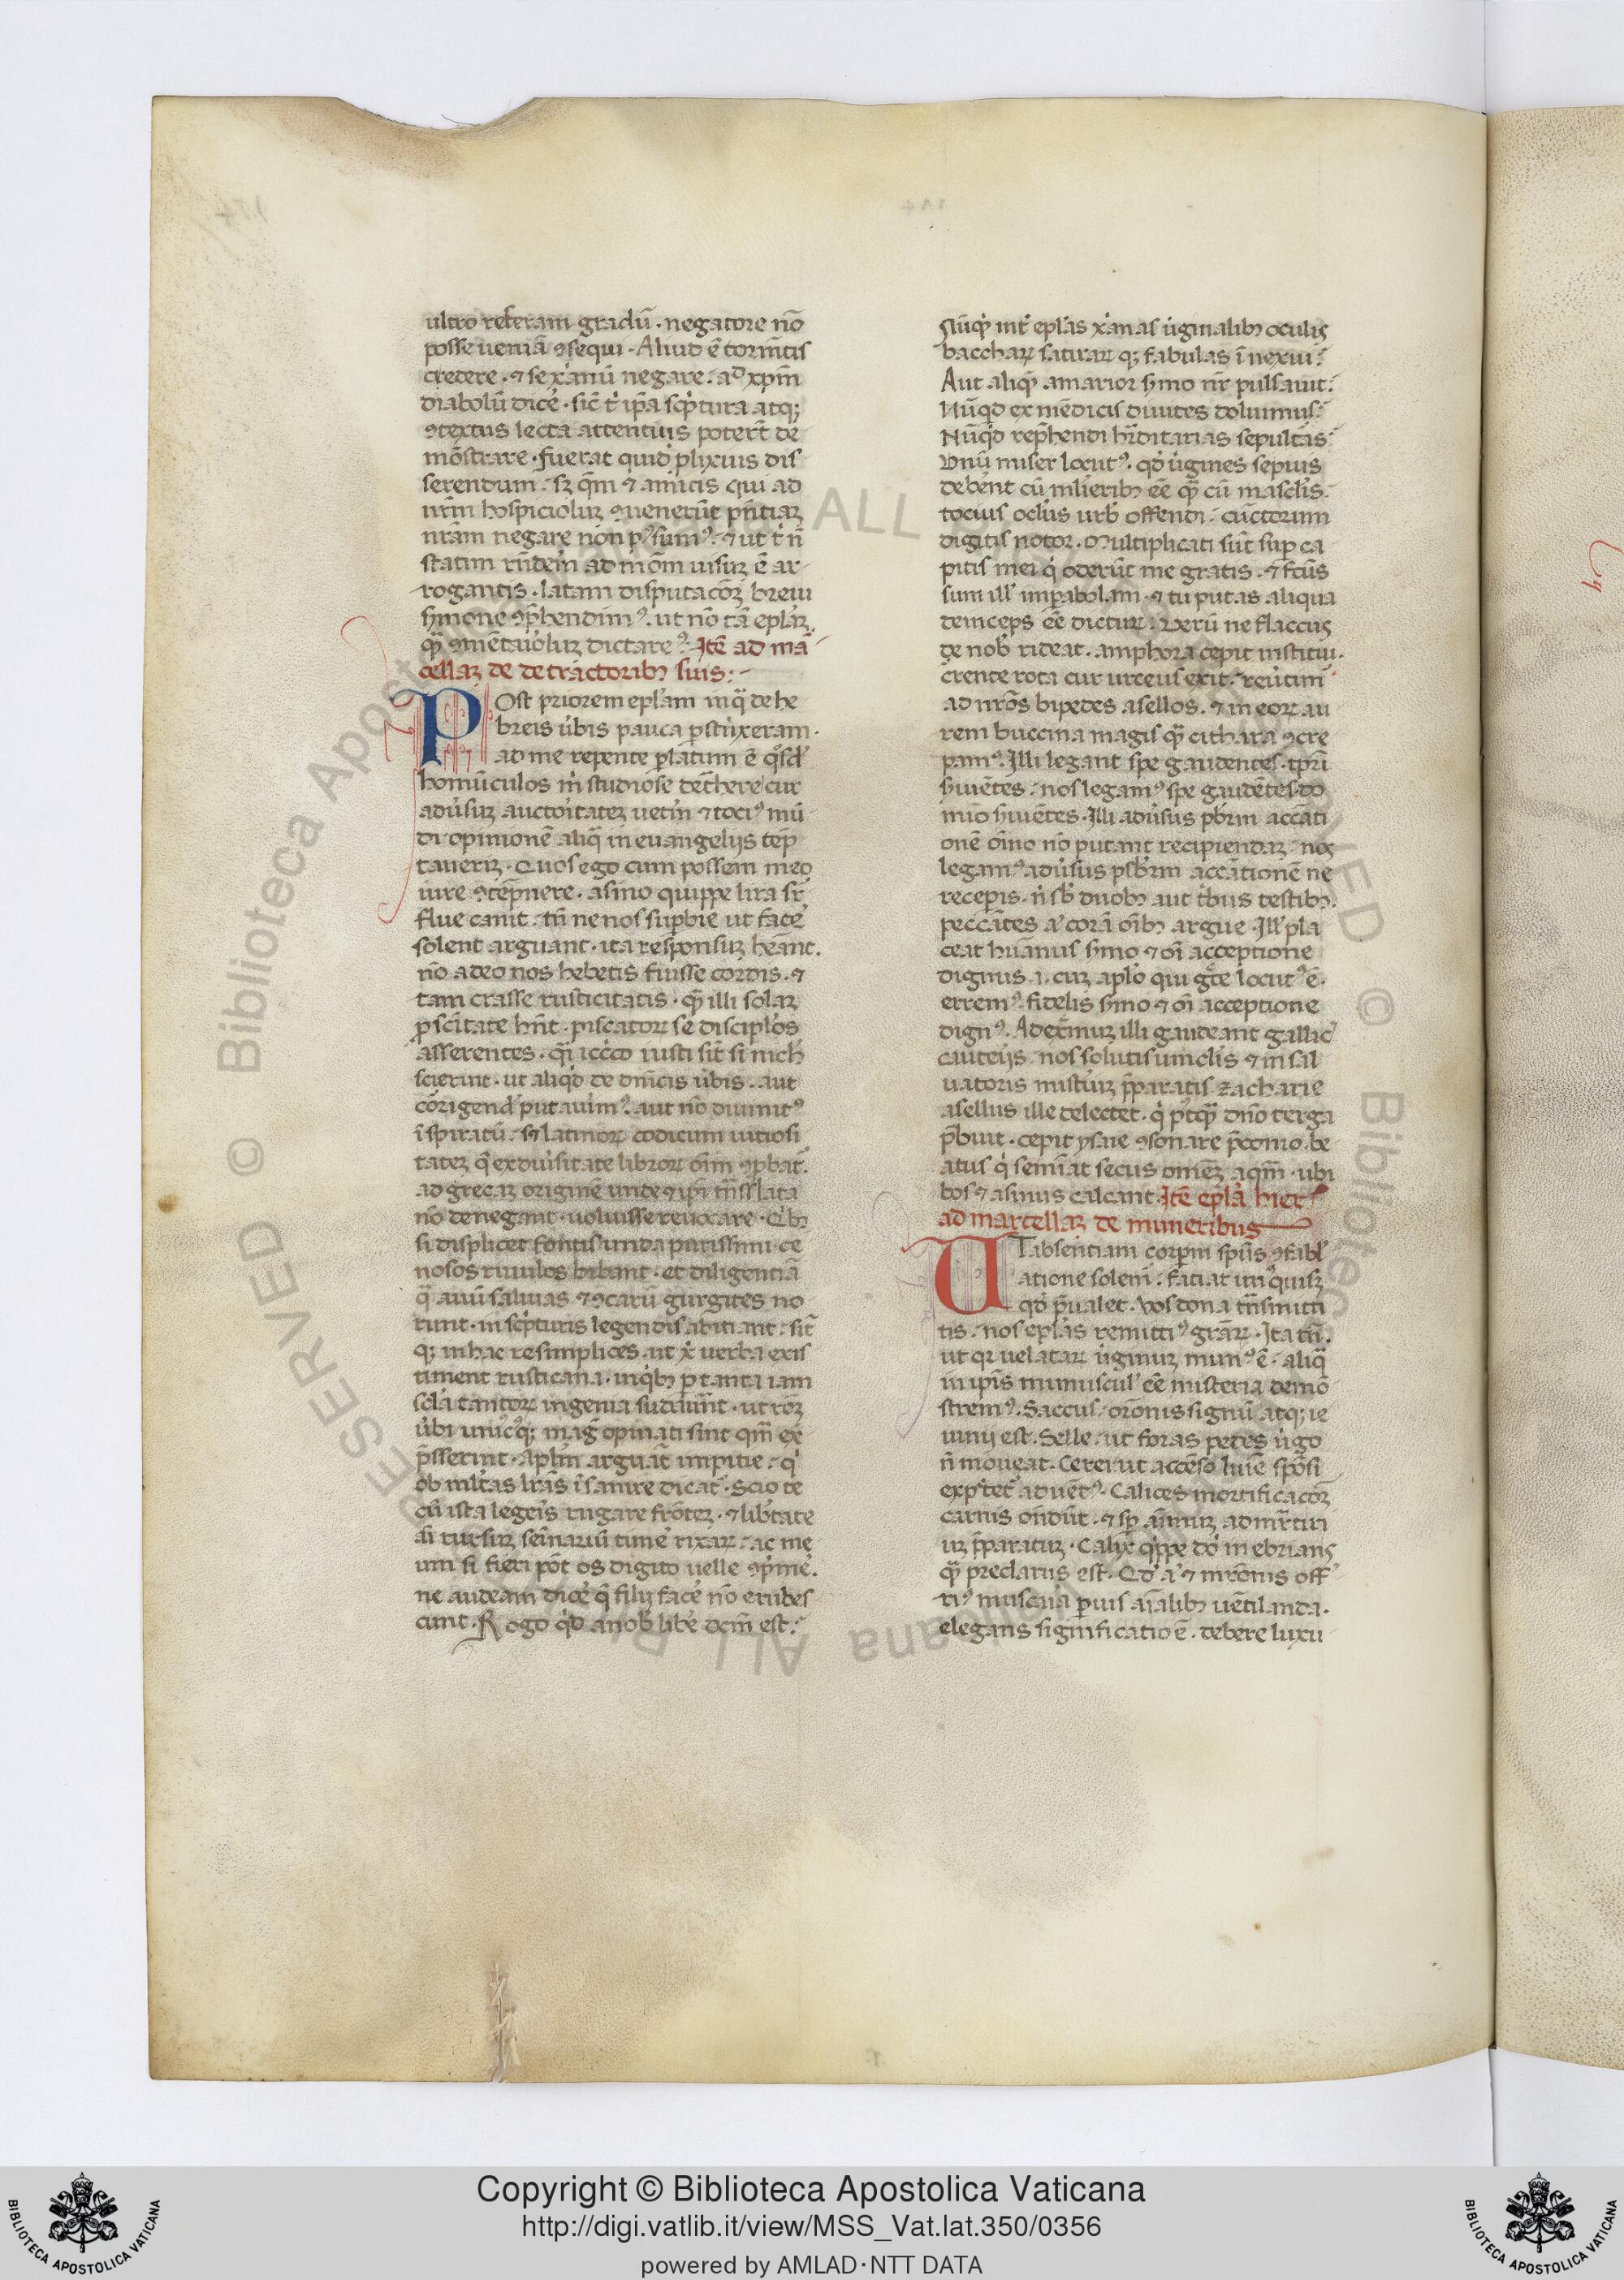 ultro referam gradū · negatore nō
posse ueniā ꝯsequi · Aliud ē torm̄tis
credere · ⁊ se xānū negare · ad xp̄m
diabolū dicē · sic̄ t' ip̄a sc̄ptura atq;
ꝯtextus lecta attentius poterīt de
mōstrare · fuerat quid plixius dis
serendum · sꝫ qm̄ ⁊ amicis qui ad
nr̄m hospiciolū ꝯuenerūt pn̄tiaꝫ
nr̄am negare non p'sum' · ⁊ ut t' n̄
statim rn̄dem ad m̄om uisuꝫ ē ar
rogantis · latam disputac̄oꝫ breui
ẜmone ꝯp̄hendim' · ut nō tā epl̄aꝫ
qȝ ꝯmētariolū dictare' · Itē ad mā
cellaꝫ de detractoribꝫ suis ·
Post priorem epl̄am in q̄ de he
breis ūbis pauca p̄strīxeram ·
ad me repente p̄latum ē q°sd'
homūculos m̄ studiose det̄here cur
adūsuꝫ auctor̄tateꝫ uet̄m ⁊ toci' mū
di opinionē aliq̄ in euangelijs tēp
taueriꝫ · Quos ego cum possem meo
iure ꝯtēp̄nere · asino quippe lira sr̄
flue canit · tn̄ ne nos sup̄bie ut facē
solent arguant · ita responsuꝫ heānt ·
nō adeo nos hebetis fuisse cordis · ⁊
tam crasse rusticitatis · qȝ illi solaꝫ
ꝓ sc̄itate hn̄t · piscatoꝝ se discipl̄os
asserentes · qȝ icc̄o iusti sīt si nich̄
scierint · ut aliqd̄ de dn̄icis ūbis · aut
cōrigend' putauim' · aut nō diuinit'
īspiratū · sꝫ latinoꝝ codicum uitiosi
tateꝫ q̄ ex diūsitate libroꝝ oīm ꝯp̄bat'
ad grecaꝫ originē unde ⁊ ip̄i tn̄sslata
nō denegant · uoluisse reuocare · Qībꝫ
si displicet fontis unda purissimi ce
nosos riuulos bibant · et diligentiā
q̄ auiū saluas ⁊ ꝯcarū gurgites no
runt · in sc̄pturis legendis abitiant · sīt
q; in hac re simplices · ut x̄ uerba exis
timent rusticana · in qībꝫ p tanta iam
sc̄la tantoꝝ ingenia sudauīnt · ut rōꝫ
ūbi unic'q; mag' opinati sint qm̄ ex
p̄sserint · Apl̄m arguāt impitie · q̄
ob ml̄tas lr̄as īsanire dicat' · Scio te
cū ista legeīs rugare frōteꝫ · ⁊ lib̄tate
aī rursuꝫ seīnariū timē rixaꝝ · ac me
um si fieri pōt os digito uelle ꝯp̄mē ·
ne audeam dicē q̄ filij facē nō erubes
cunt · Rogo qd̄ a nob̄ libē dc̄m est ·
Nūqd̄ int̄ epl̄as xānas ūginalibꝫ oculis
bacchaꝝ satiraꝝ q; fabulas ī nexui ·
Aut aliqn̄ amarior ẜmo nr̄ pulsauit ·
Nūqd ex mēdicis diuites doluimus ·
Nūqd rep̄hendi hr̄ditarias sepultas ·
Vnū miser locut' · qd̄ ūgines sepius
debent cū ml̄ieribꝫ eē qȝ cū mascl̄is ·
tocius ocl̄us urb̄ offendi · cūctorum
digitis notor · Multiplicati sūt sup ca
pitis mei q̄ oderūt me gratis · ⁊ fc̄us
sum ill̄ in p̄abolam · ⁊ tu putas aliqua
deinceps eē dictur̄ · Verū ne flaccus
de nob̄ rideat · amphora cepit institui ·
c̄rente rota cur urceus exit · reūtim'
ad nr̄os bipedes asellos · ⁊ in eoꝝ au
rem buccina magis qȝ cithara ꝯcre
pam' · Illi legant spe gaudentes · tp̄ri
ẜuiētes · nos legam' spe gaudētes · do
mīo ẜuiētes · Illi adūsus pb̄rm accāti
onē oīno nō putant recipiendaꝫ · nos
legam' adūsus psb̄rm accātionē ne
recepis · n̄ sb̄ duobꝫ aut t̄bus testibꝫ ·
peccātes āt corā oībꝫ argue · Ill' pla
ceat hūanus ẜmo ⁊ oī acceptione
dignus · ⁊ cuꝫ apl̄o qui gr̄ce locut' ē ·
errem' · fidelis ẜmo ⁊ oī acceptione
dign' · Ad extm̄uꝫ illi gaudeant gallic'
cauteijs · nos solutis uincl̄is ⁊ in sal
uatoris mist̄iuꝫ p̄paratis zacharie
asellus ille delectet · q̄ p'tqȝ dn̄o terga
p̄buit · cepit ysaie ꝯsonare p̄conio · be
atus q̄ semīat secus omēꝫ aqm̄ · ubi
bos ⁊ asinus calcant · Itē epl̄a hier'
ad marcellaꝫ de muneribus
UT absentiam corpm̄ spūs ꝯfabl̄
atione solem' · faciat un'quisꝫ
qd̄ p̄ualet · Vos dona tn̄smitti
tis · nos epl̄as remitti' grāꝝ · Ita tn̄ ·
ut qꝛ uelataꝝ ūginuꝫ mun' ē · aliq̄
in ipīs munuscul' eē misteria demō
strem' · Saccus · orōnis signū atq; ie
iunij est · Selle · ut foras pedes ūgo
n̄ moueat · Cerei ut accēso luīe spōsi
exp'tet' aduēt' · Calices mortificacōꝫ
carnis on̄dūt · ⁊ sp aīmuꝫ ad mr̄tiri
uꝫ p̄paratuꝫ · Calyx q̄ppe dō' inebrians
qȝ preclarus est · Qd' āt ⁊ mr̄onis off
ri' muscaria ꝑuis aīalibꝫ uētilanda ·
elegans significatio ē · debere luxu
Copyright © Biblioteca Apostolica Vaticana
http://digi.vatlib.it/view/MSS_Vat.lat.350/0356
powered by AMLAD·NTT DATA